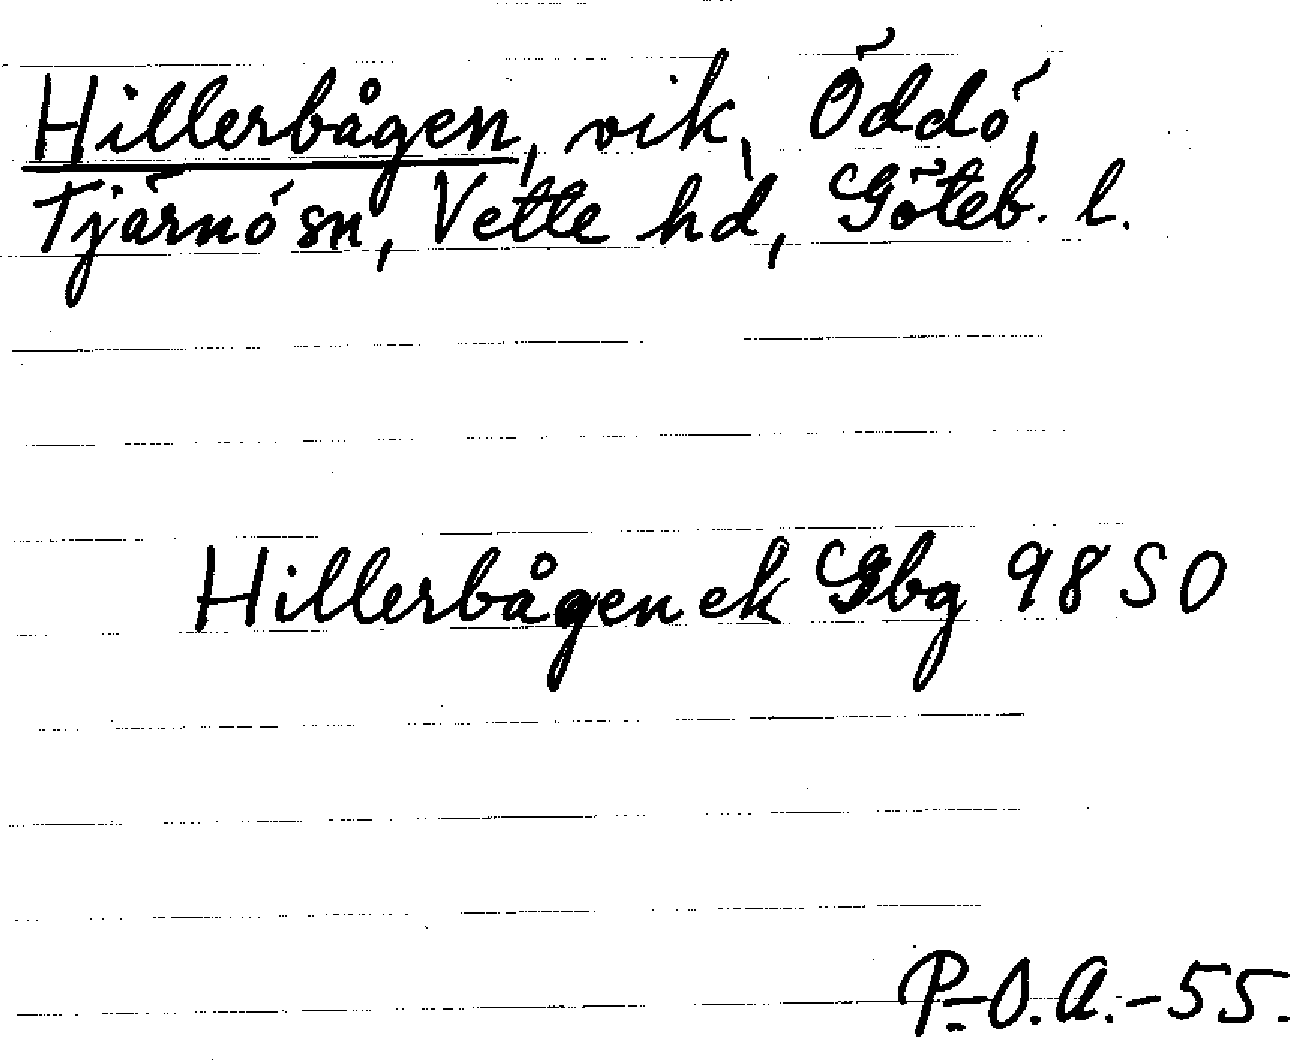 Hillerbågen, vik, Öddö,
Tjärnö sn, Vette hd, Göteb. l.
Hillerbågen ek Gbg 98 SO
P.-O.A.-55.